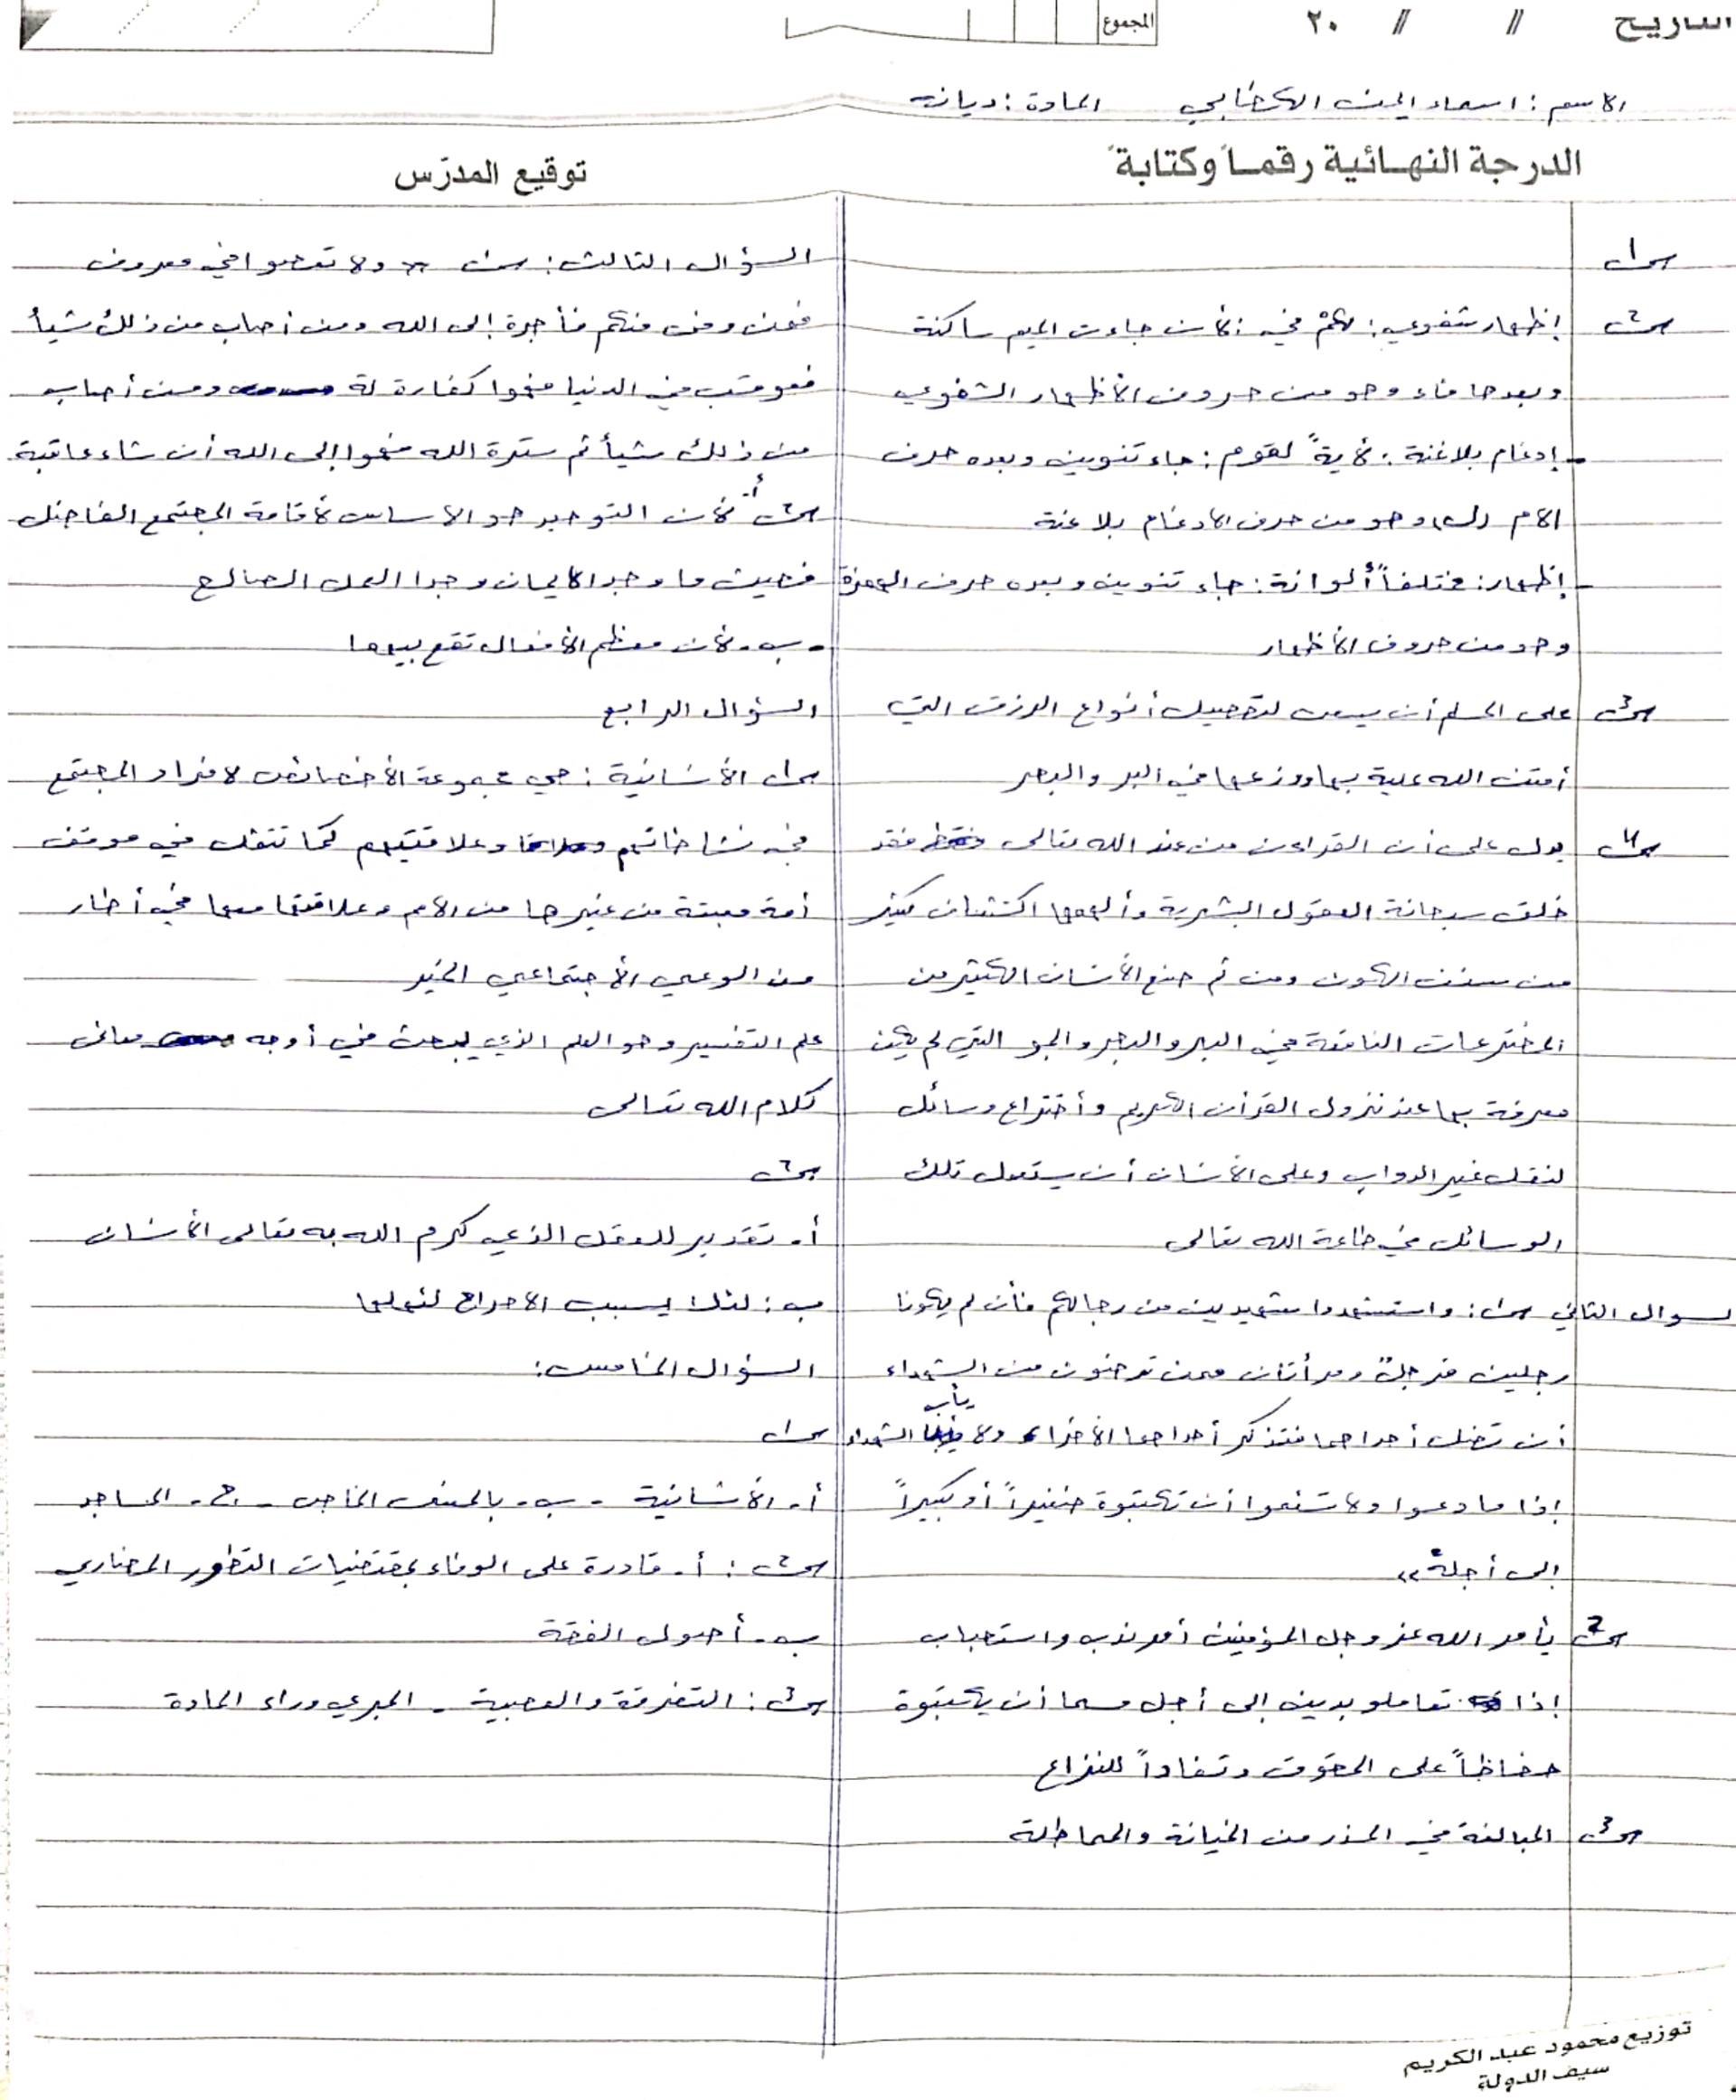 التاريخ // // ٢٠
المجموع
الاسم : اسماء المادة : ديانة
الدرجة النهائية رقماً وكتابةً
توقيع المدرّس
س١
س٢ إظهار شفوي : لكمْ في : لأن جاءت الميم ساكنة
وبعدها فاء وهو من حروف الأظهار الشفوي
- إدغام بلاغنة : لأيةً لقوم : جاء تنوين وبعده حرف
الام (ل) وهو من حرف الادغام بلا غنة
- إظهار : مختلفاً ألوانة : جاء تنوين وبعده حرف الهمزة
وهو من حروف الأظهار
س٣ على المسلم أن يسعى لتحصيل أنواع الرزق التي
أمتن الله علية بها ووزعها في البر والبحر
س٤ يدل على أن القراءن من عند الله تعالى فقد
خلق سبحانة العقول البشرية وألهمها اكتشاف كثير
من سنن الكون ومن ثم صنع الأنسان الكثير من
المخترعات النافعة في البر والبحر والجو التي لم يكن
معرفة بها عند نزول القرأن الكريم وأختراع وسائل
لنقل غير الدواب وعلى الأنسان أن يستعمل تلك
الوسائل في طاعة الله تعالى
لسوال الثاني س١ : واستشهدوا شهيدين من رجالكم فأن لم يكونا
رجلين فرجلٌ ومرأتان ممن ترضون من الشهداء
أن تضل أحداهما فتذكر أحداهما الأخرا ولا يأب الشهداء
إذا ما دعوا ولا تسئموا أن تكتبوة صغيراً أو كبيراً
إلى أجلة"
س٢ يأمر الله عز وجل المؤمنين أمر ندب واستحباب
إذا تعاملو بدين إلى أجل مسما أن يكتبوة
حفاظاً على الحقوق وتفاداً للنزاع
س٣ المبالغة في الحذر من الخيانة والمماطلة
السؤال الثالث : س١ " ولا تعصوا في معروف
فمن وفى منكم فأجرة إلى الله ومن أصاب من ذلك شيأ
فعوقب في الدنيا فهوا كفارة لة ومن أصاب
من ذلك شيأ ثم سترة الله فهوا إلى الله أن شاء عاقبة
س٢ أ. لأن التوحيد هو الاساس لأقامة المجتمع الفاضل
فحيث ما وجد الايمان وجدا العمل الصالح
- ب. لأن معظم الأفعال تقع بيدها
السؤال الرابع
س١ الأنسانية : هي مجموعة الأخصائص لافراد المجتمع
في نشاطاتهم وعلاقتهم كما تتمثل في موقف
أمة معينة من غيرها من الامم وعلاقتها معها في أطار
من الوعي الأجتماعي الخير
علم التفسير وهو العلم الذي يبحث في أوجه معانى
كلام الله تعالى
س٢
أ. تقدير للعقل الذي كرم الله به تعالى الأنسان
ب : لئلا يسبب الاحراج لئهلها
السؤال الخامس :
س١
أ. الأنسانية - ب. بالمعنى الخاص - ج. المساجد
س٢ : أ. قادرة على الوفاء بمقتضيات التطور الحضاري
ب. أصول الفقة
س٣ : التفرقة والعصبية - الجري وراء المادة
توزيع محمود عبد الكريم
سيف الدولة